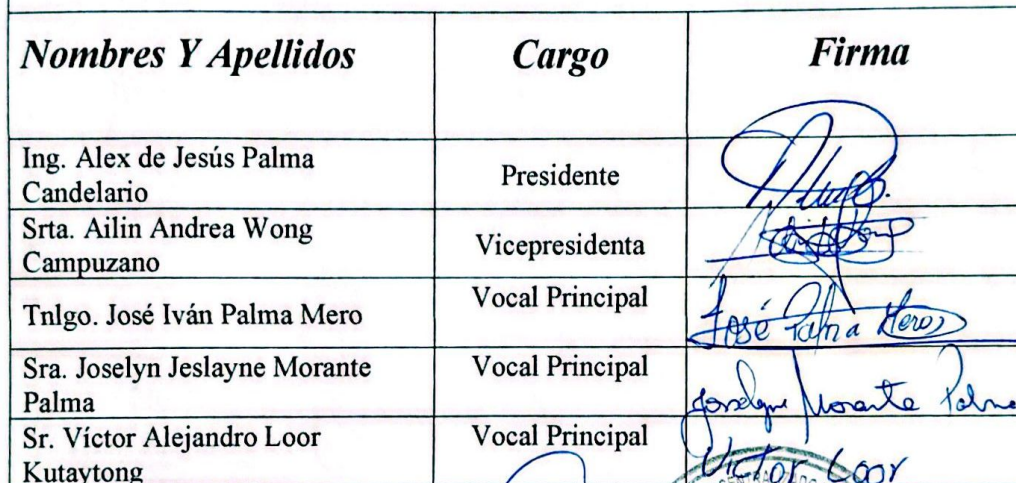 Nombres Y Apellidos Cargo Firma
Ing. Alex de Jesús Palma
Candelario
Presidente
Srta. Ailin Andrea Wong
Campuzano
Vicepresidenta
Tnlgo. José Iván Palma Mero
Vocal Principal
José Palma Mero
Sra. Joselyn Jeslayne Morante
Palma
Vocal Principal
Joselyn Morante Palma
Sr. Víctor Alejandro Loor
Kutaytong
Vocal Principal
Victor Loor